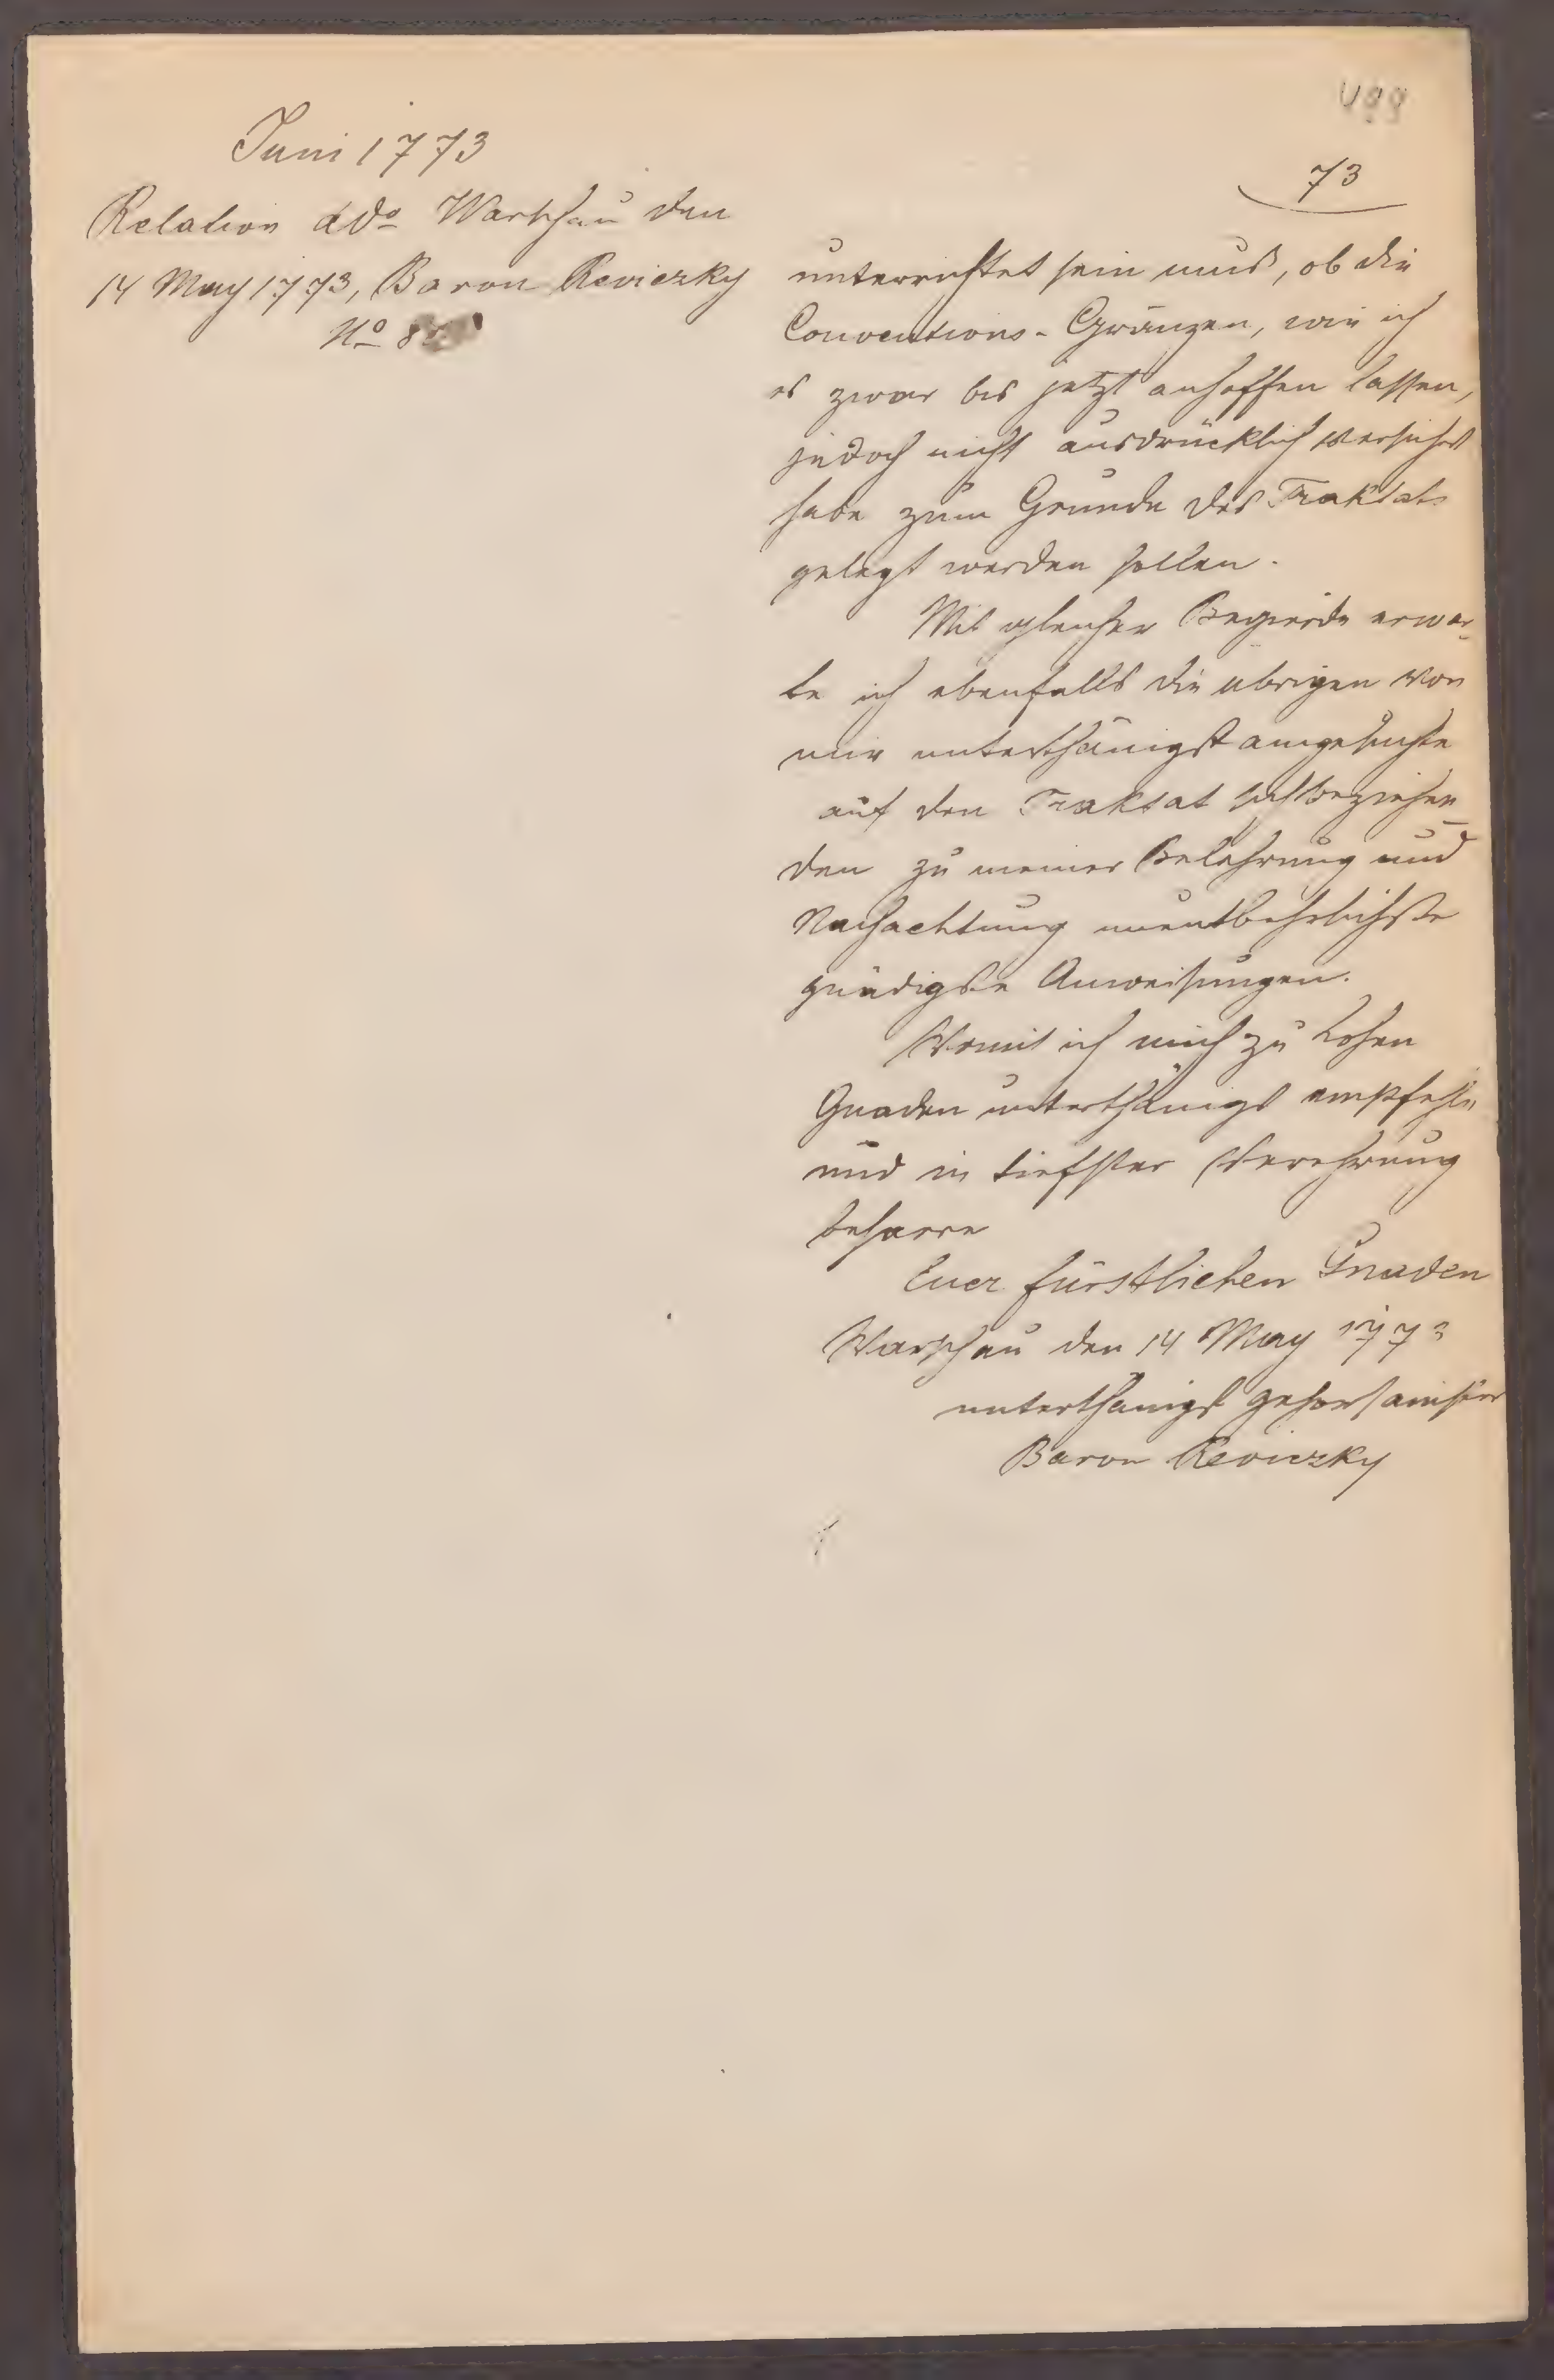 499
73
Juni 1773
Relation ddo Warschau den
14 May 1773, Baron Reviczky
No 8
unterrichtet sein muß, ob die
Conventions-Gränzen, wie ich
es zwar bis jetzt anhoffen lassen,
jedoch nicht ausdrücklich versichert
habe zum Grunde des Traktats
gelegt werden sollen.
Mit gleicher Begierde erwar-
te ich ebenfalls die übrigen von
mir unterthänigst angesuchte
auf den Traktat sich beziehen-
den zu meiner Belehrung und
Nachachtung unentbehrlichste
gnädigste Anweisungen.
Womit ich mich zu hohen
Gnaden unterthänigst empfehle
und in tiefster Verehrung
beharre
Euer fürstlichen Gnaden
Warschau den 14 May 1773
unterthänigst gehorsamster
Baron Reviczky